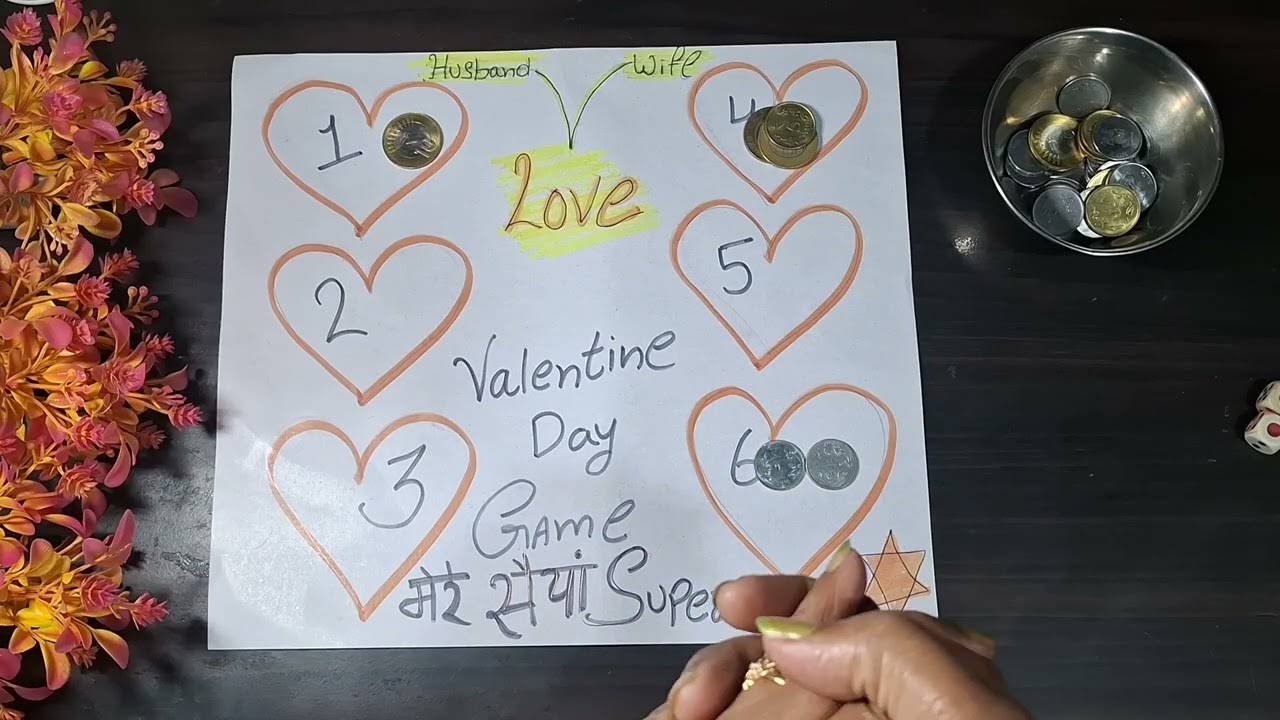 Husband Wife
Love
1
4
2
5
3
6
Valentine
Day
Game
मेरे सैयां Supe